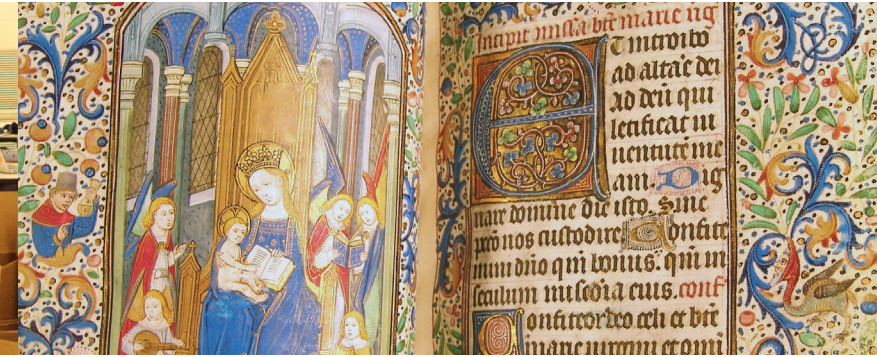 Incipit missa bte marie vig
ET introibo
ad altaē dei
ad deū qui
letificat iu
uentutē me
am Dig
nare domine die isto. Sine
pctō nos custodire Confite
mini dn̄o qm̄ bonus. qm̄ in
seculum mis̄cdia eius. conf̄
Confiteor deo celi et btē
marie uirgini et omi